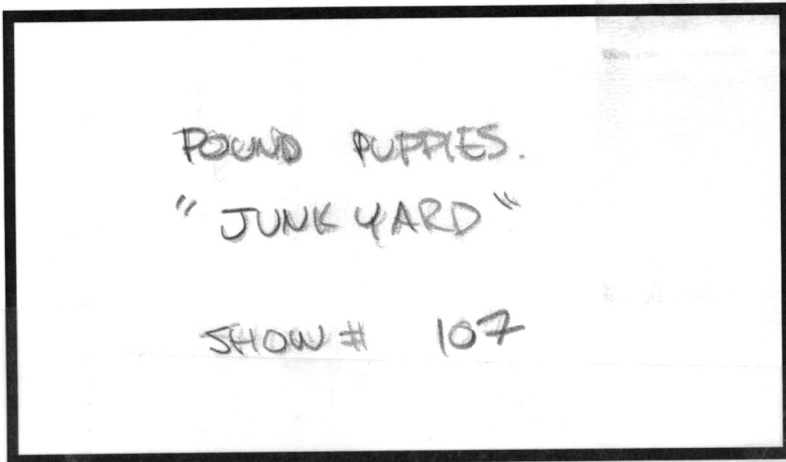 POUND PUPPIES.
"JUNKYARD"
SHOW # 107